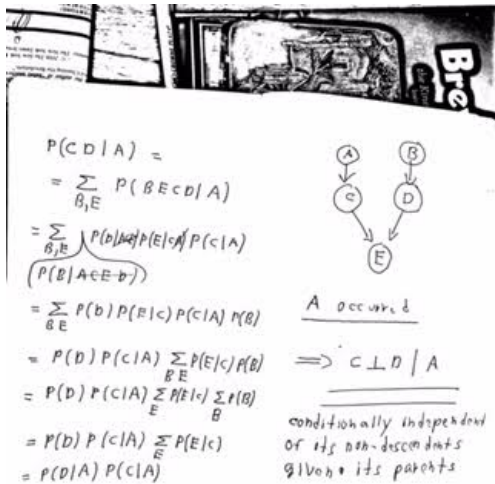 Bre
P(CD|A) =
= Σ P(BECD|A)
B,E
= Σ P(D|AC)P(E|CA)P(C|A)
B,E
(P(B|ACED))
= Σ P(D)P(E|C)P(C|A)P(B)
BE
= P(D)P(C|A) Σ P(E|C)P(B)
BE
= P(D)P(C|A) Σ P(E|C) Σ P(B)
E B
= P(D)P(C|A) Σ P(E|C)
E
= P(D|A)P(C|A)
A B
C D
E
A occurred
⟹ C⊥D|A
conditionally independent
of its non-descendents
given its parents